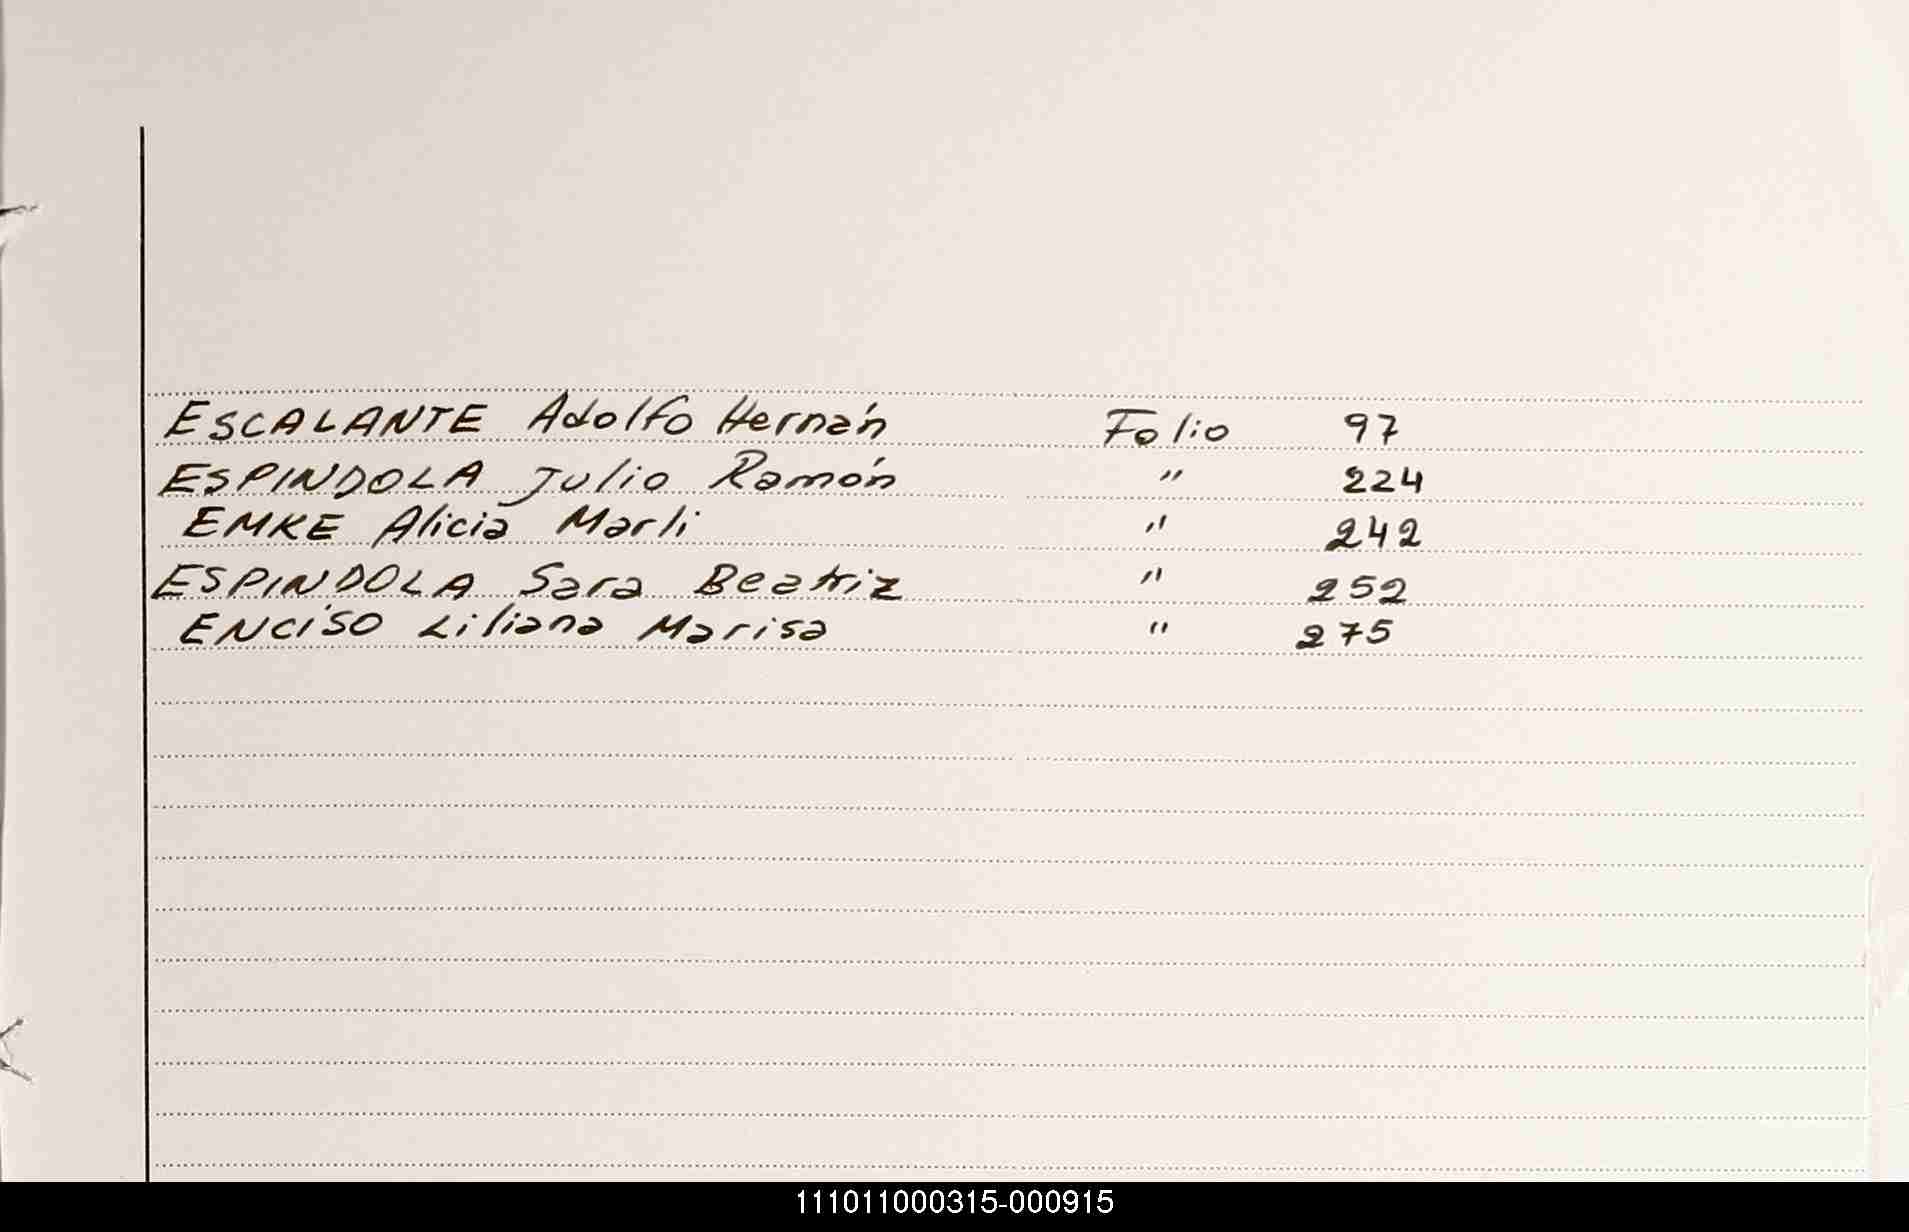 ESCALANTE Adolfo Hernán Folio 97
ESPINDOLA Julio Ramón " 224
EMKE Alicia Marli " 242
ESPINDOLA Sara Beatriz " 252
ENCISO Liliana Marisa " 275
111011000315-000915